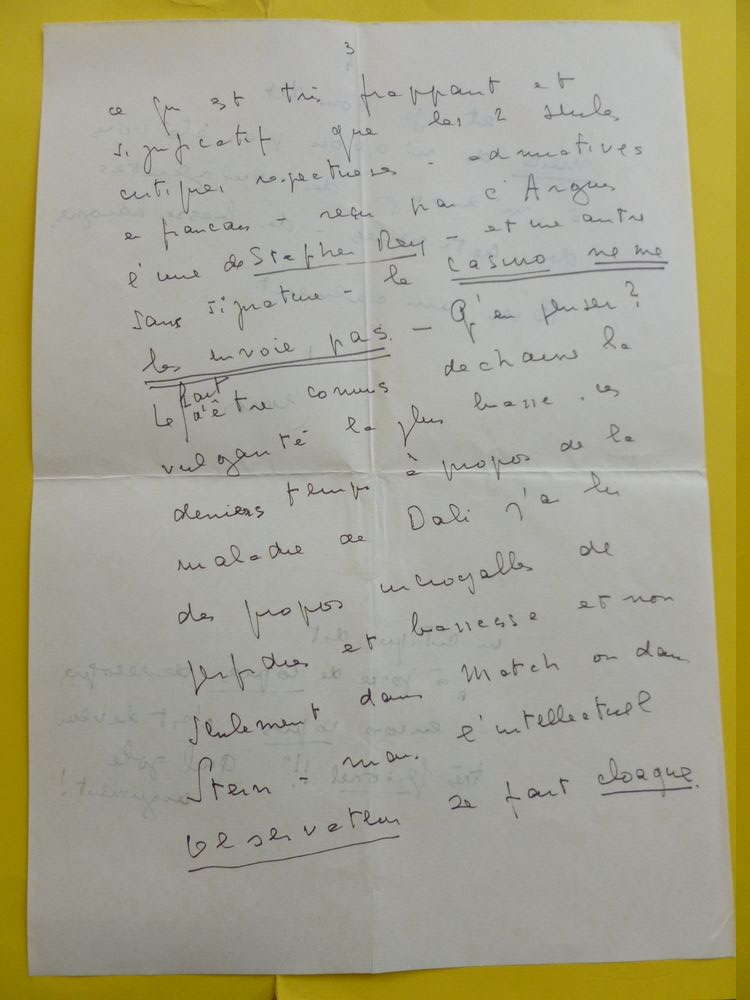 3
ce qu est très frappant et
significatif que les 2 seules
critiques respectueses - admiratives
en francais - reçu par l'Argus
l'une de Stephen Rey - et une autre
sans signature - le casino neme
les envoie pas. - Q'en penser?
Le fait d'être connus dechaine la
vulgarité la plus basse. ces
derniers temps à propos de la
maladie de Dali j'ai lu
des propos incroyalles de
perfidies et bassesse et non
seulement dans Match ou dans
Stern - mai. l'intellectuel
Observateur se fait cloaque.